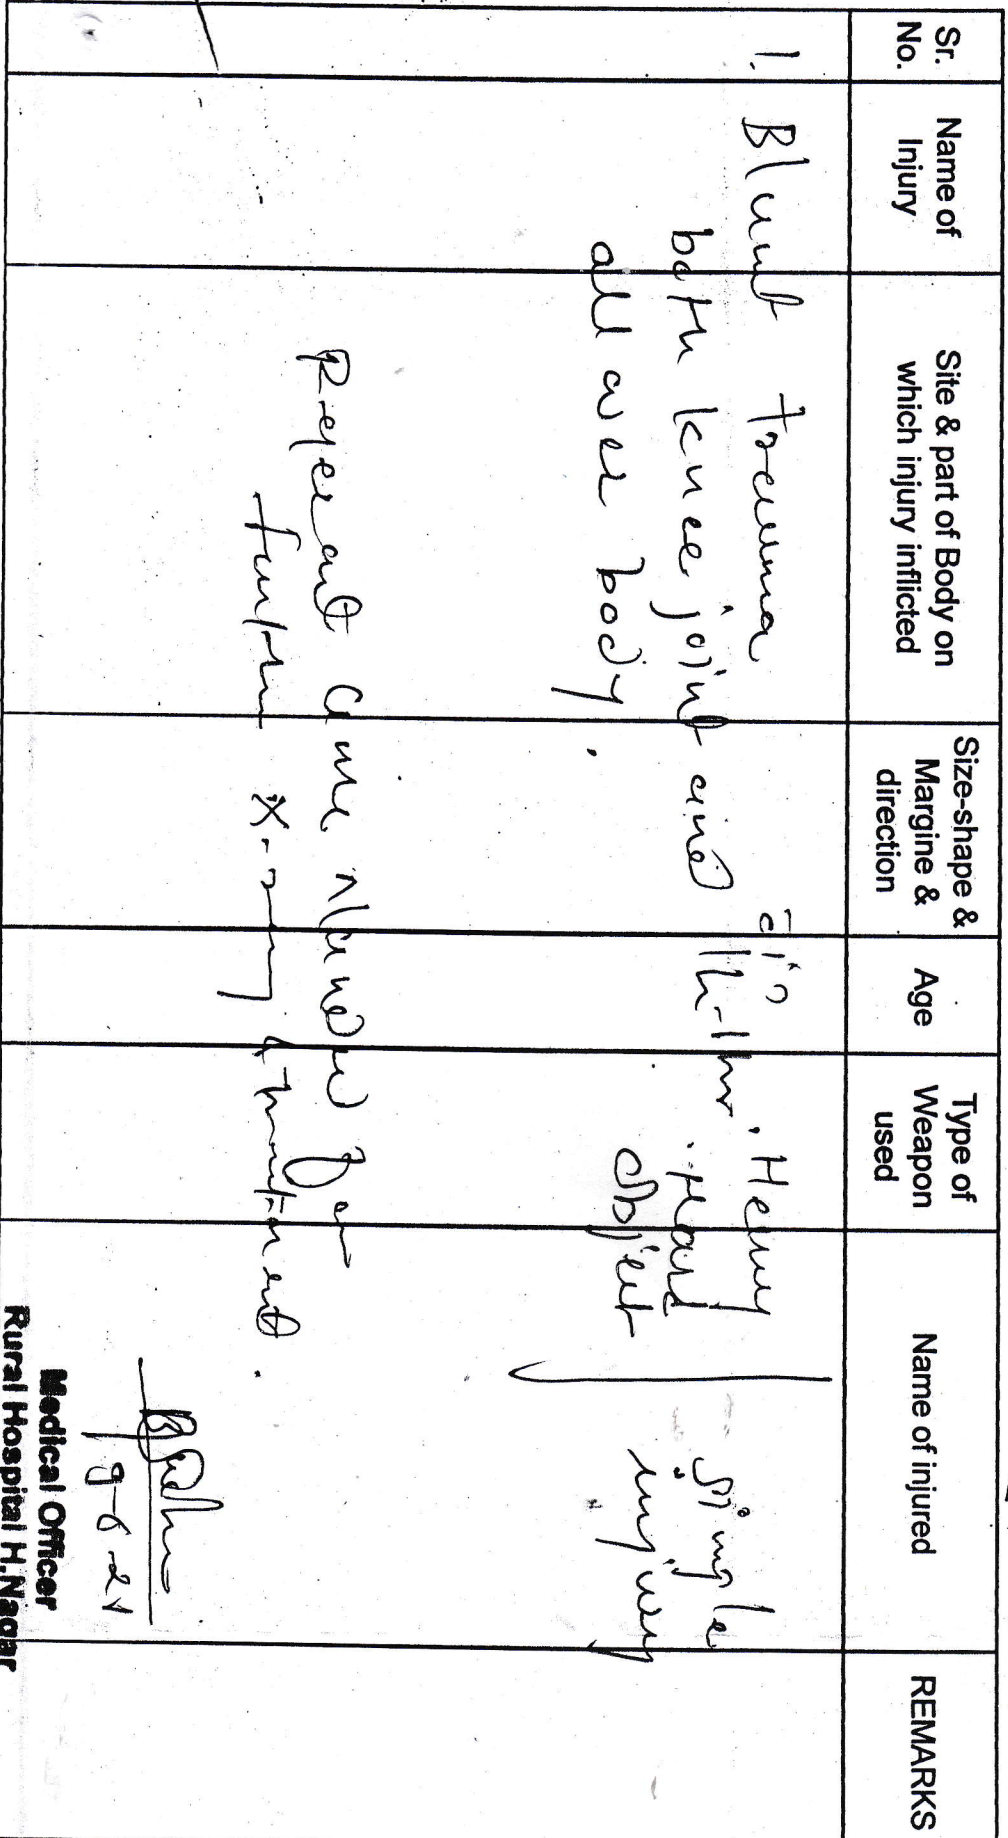 Sr. No.
Name of Injury
Site & part of Body on which injury inflicted
Size-shape & Margine & direction
Age
Type of Weapon used
Name of injured
REMARKS
1. Blunt trauma
both knee joint and
all over body.
1h-1hr.
Heavy
Hard
Object
Simple
injury
for
further X-ray & treatment.
Medical Officer
Rural Hospital H.Nagar